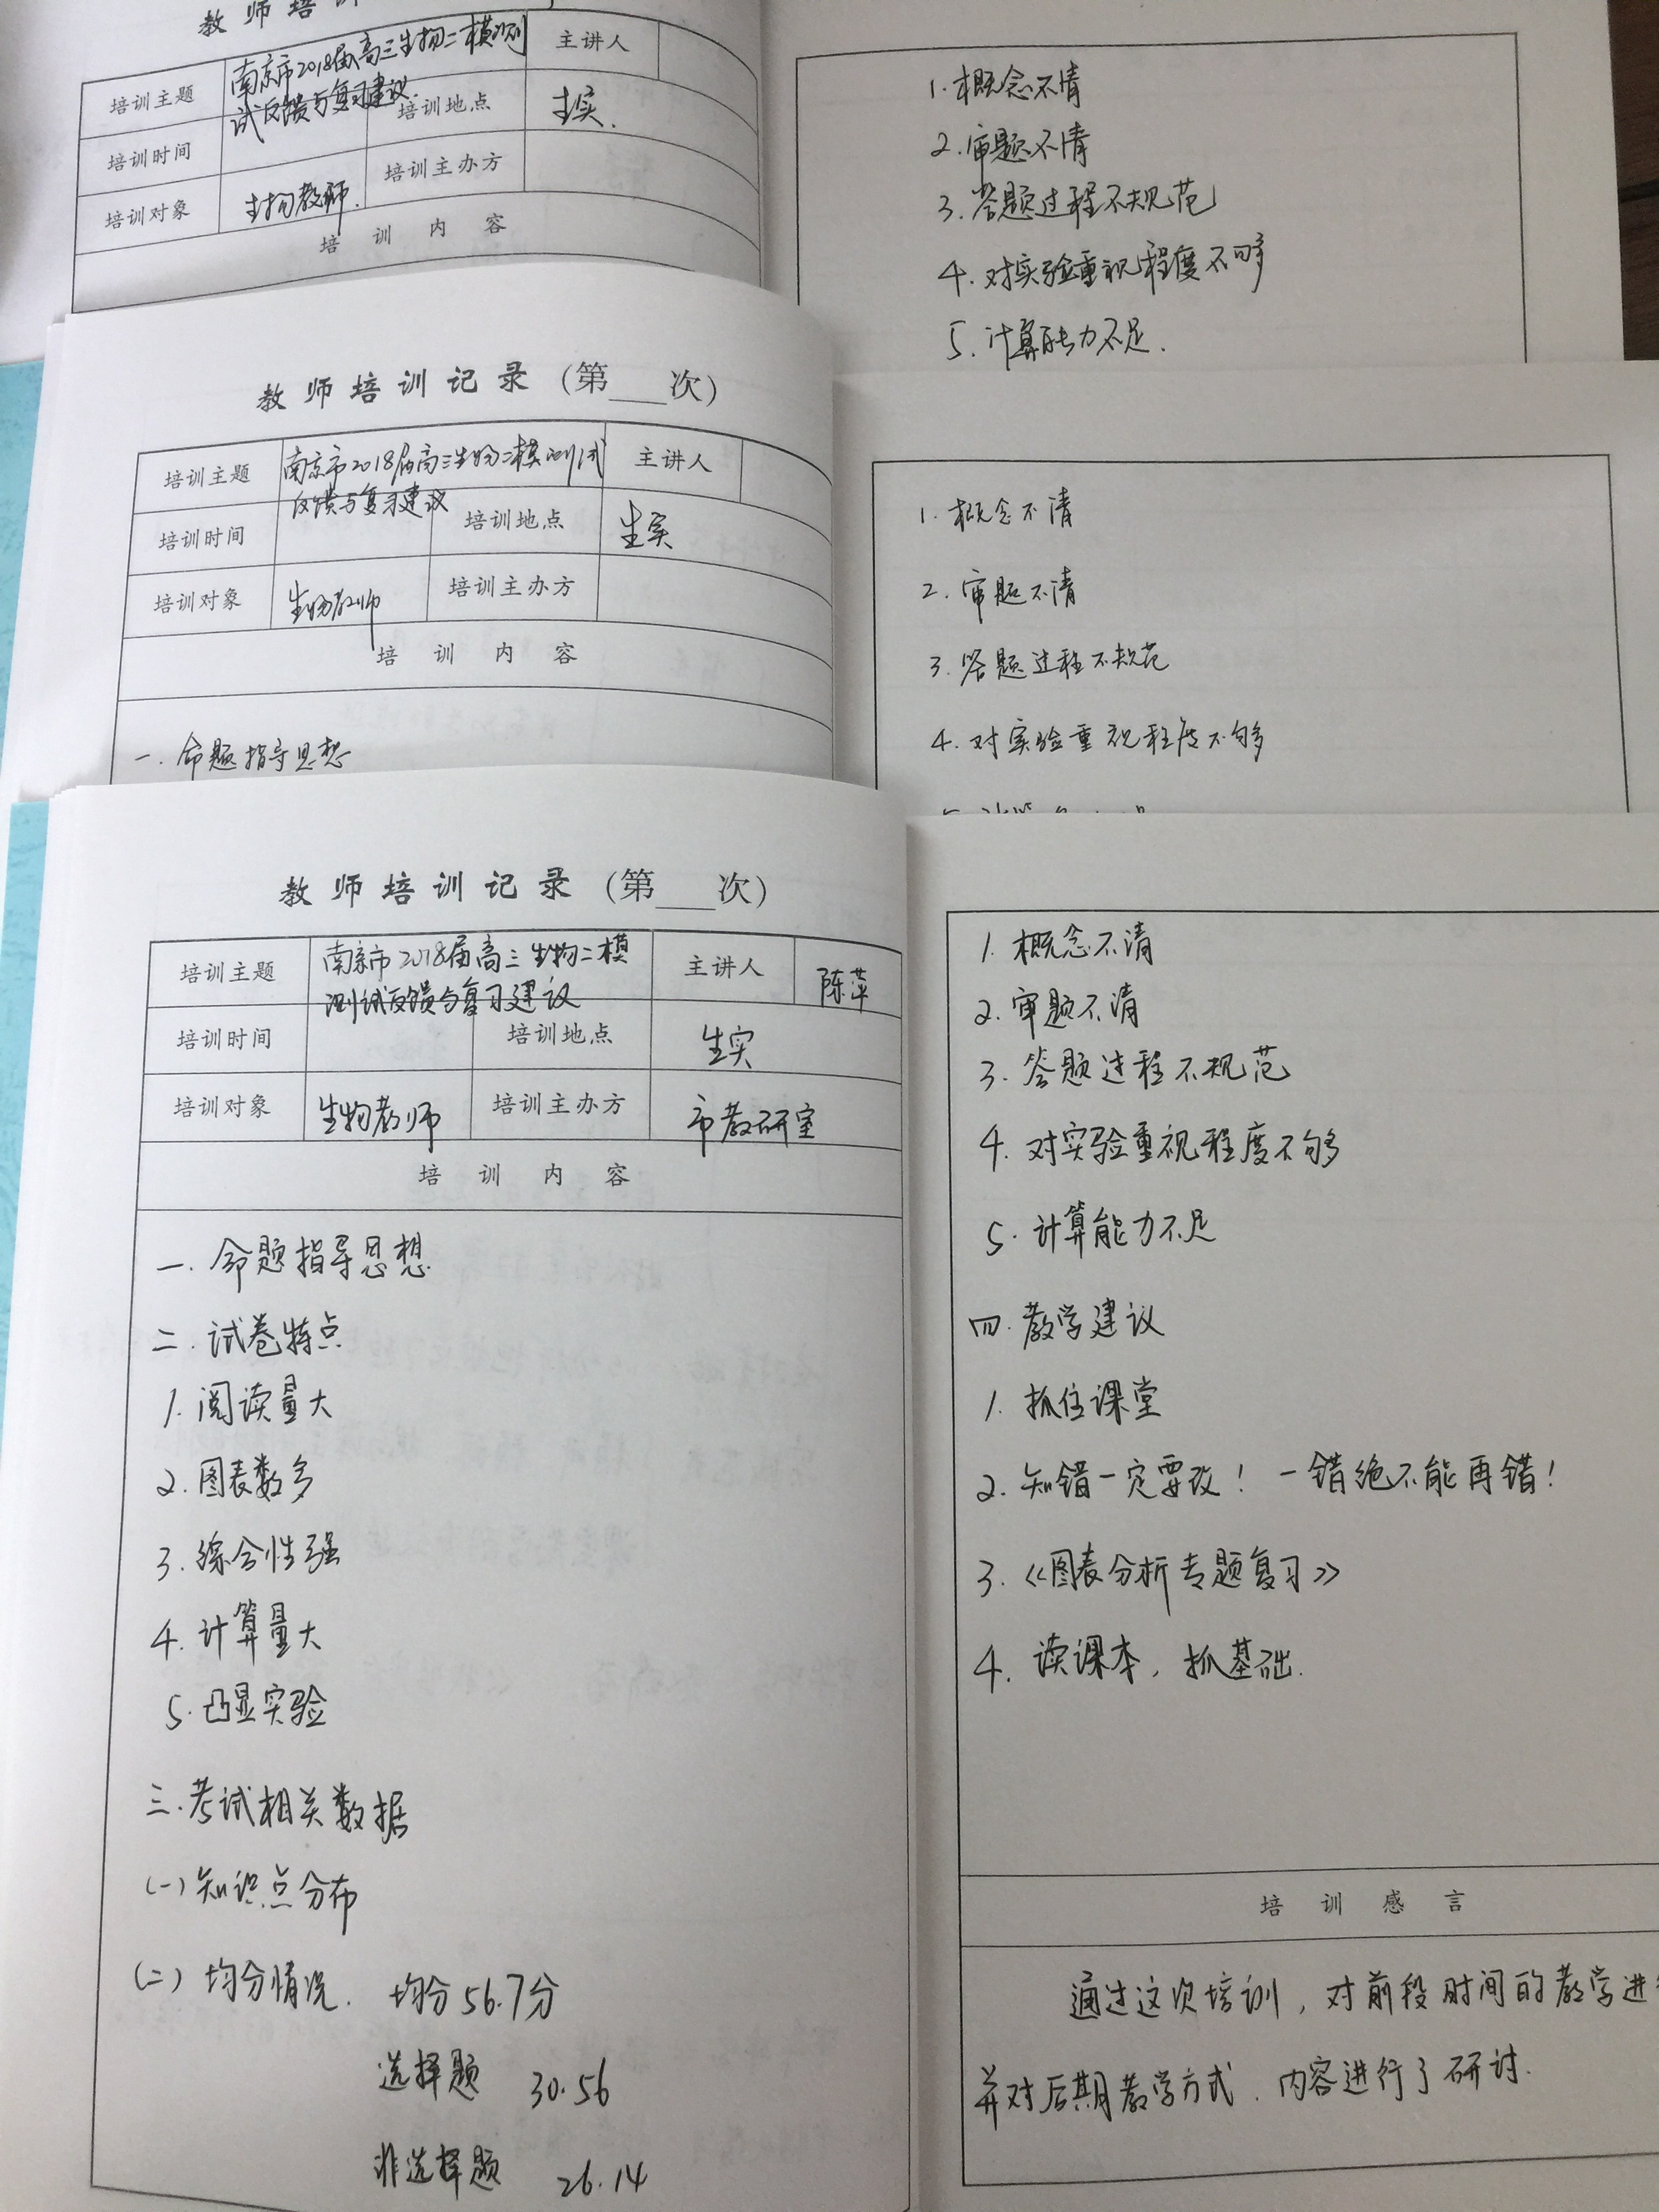 教师培训
培训主题 南京市2018届高三生物二模测 主讲人
试反馈与复习建议.
培训时间 培训地点 生实.
培训对象 生物教师. 培训主办方
培 训 内 容
1. 概念不清
2. 审题不清
3. 答题过程不规范
4. 对实验重视程度不够
5. 计算能力不足.
教师培训记录(第___次)
培训主题 南京市2018届高三生物二模测试 主讲人
反馈与复习建议
培训时间 培训地点 生实
培训对象 生物教师 培训主办方
培 训 内 容
一. 命题指导思想
1. 概念不清
2. 审题不清
3. 答题过程不规范
4. 对实验重视程度不够
教师培训记录(第___次)
培训主题 南京市2018届高三生物二模 主讲人 陈萍
测试反馈与复习建议
培训时间 培训地点 生实
培训对象 生物教师 培训主办方 市教研室
培 训 内 容
一. 命题指导思想
二. 试卷特点
1. 阅读量大
2. 图表数多
3. 综合性强
4. 计算量大
5. 凸显实验
三. 考试相关数据
(一) 知识点分布
(二) 均分情况. 均分56.7分
选择题 30.56
非选择题 26.14
1. 概念不清
2. 审题不清
3. 答题过程不规范
4. 对实验重视程度不够
5. 计算能力不足
四. 教学建议
1. 抓住课堂
2. 知错一定要改! 一错绝不能再错!
3. 《图表分析专题复习》
4. 读课本, 抓基础.
培 训 感 言
通过这次培训, 对前段时间的教学进
并对后期教学方式. 内容进行了研讨.